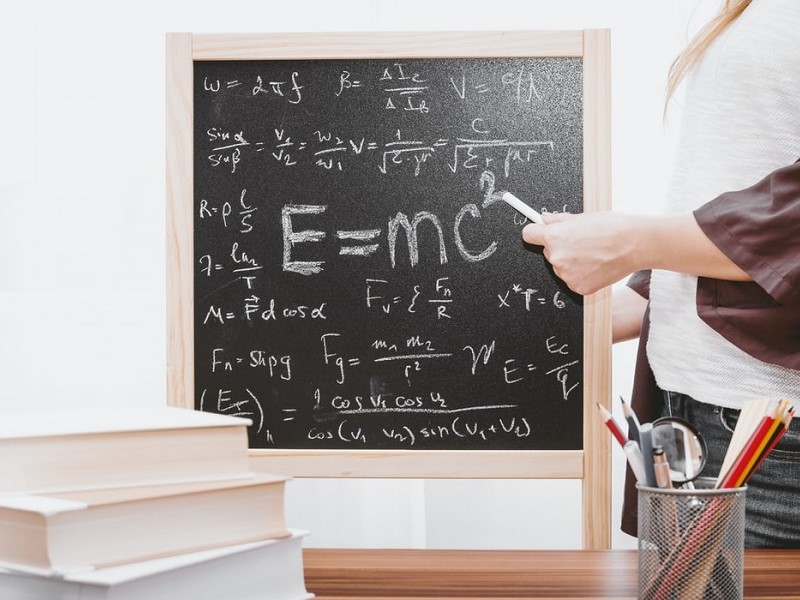 ω = 2πf β = ΔI_C / ΔI_B V =
sin α / sin β = v₁ / v₂ = n₂ / n₁ v = 1 / √(ε · μ) = c / √(εᵣ μᵣ)
R = ρ l / S
E = mc²
λ = ln₂ / T
F_v = { F_n / R x*T = 6
M = F⃗ d cos α
F_n = Shρg F_g = m₁ m₂ / r² E = E_c / q
= cos v₁ cos v₂
cos(v₁ v₂) sin(v₁ + v₂)